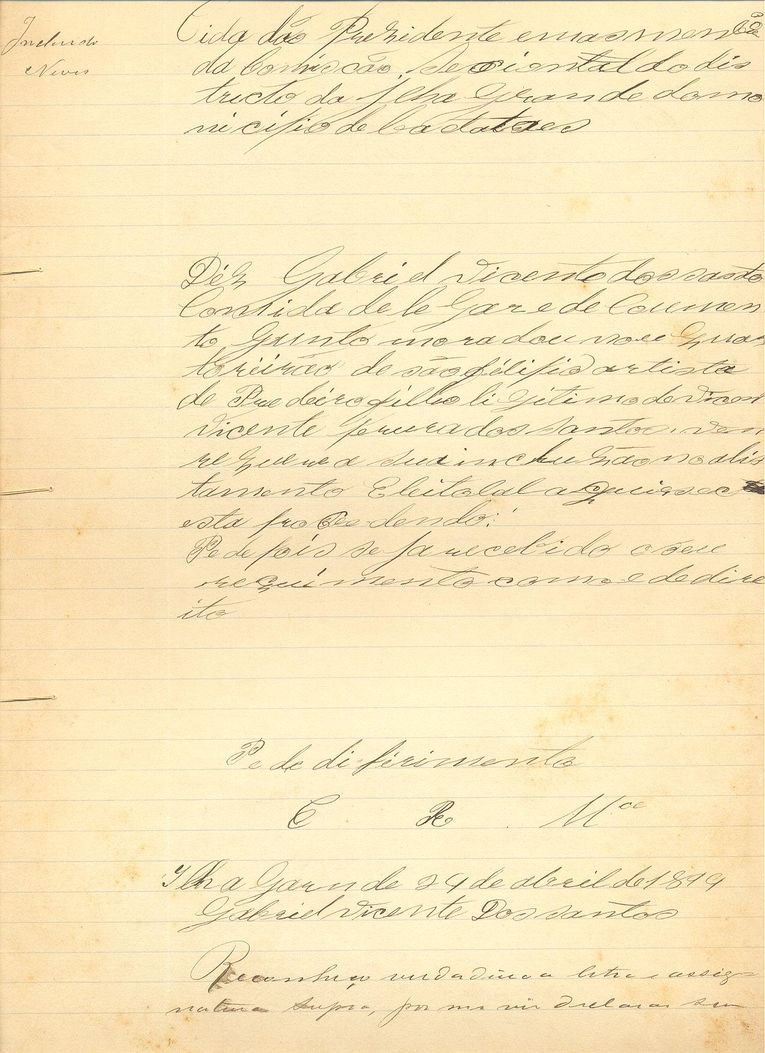 Incluido
Neves
Cidadão Prezidente emasmen
da Comição Seccional do dis
tructo da Ilha Grande do mo
nicipio de
Déz Gabriel Vicente dos santo
Con idade le Gar e de Coumen
to Gunto morador no
teirão de são félipio artista
de Predeiro filho li Gitimo de Vicen
Vicente ferura dos santos. Vem
re Querer a sua inclu zão no alis
tamento Eleitolal a Qui se
esta pro Cedendo:
Pede pois se ja recebido o seu
requimento como e de dire
ito
Pe de di ferimento
E R M.ce
Ilha Garnde 24 de abril de 1899
Gabriel Vicente Dos santos
Reconheço verdadeira a letra e assig-
natura supra, por me vir declarar seu